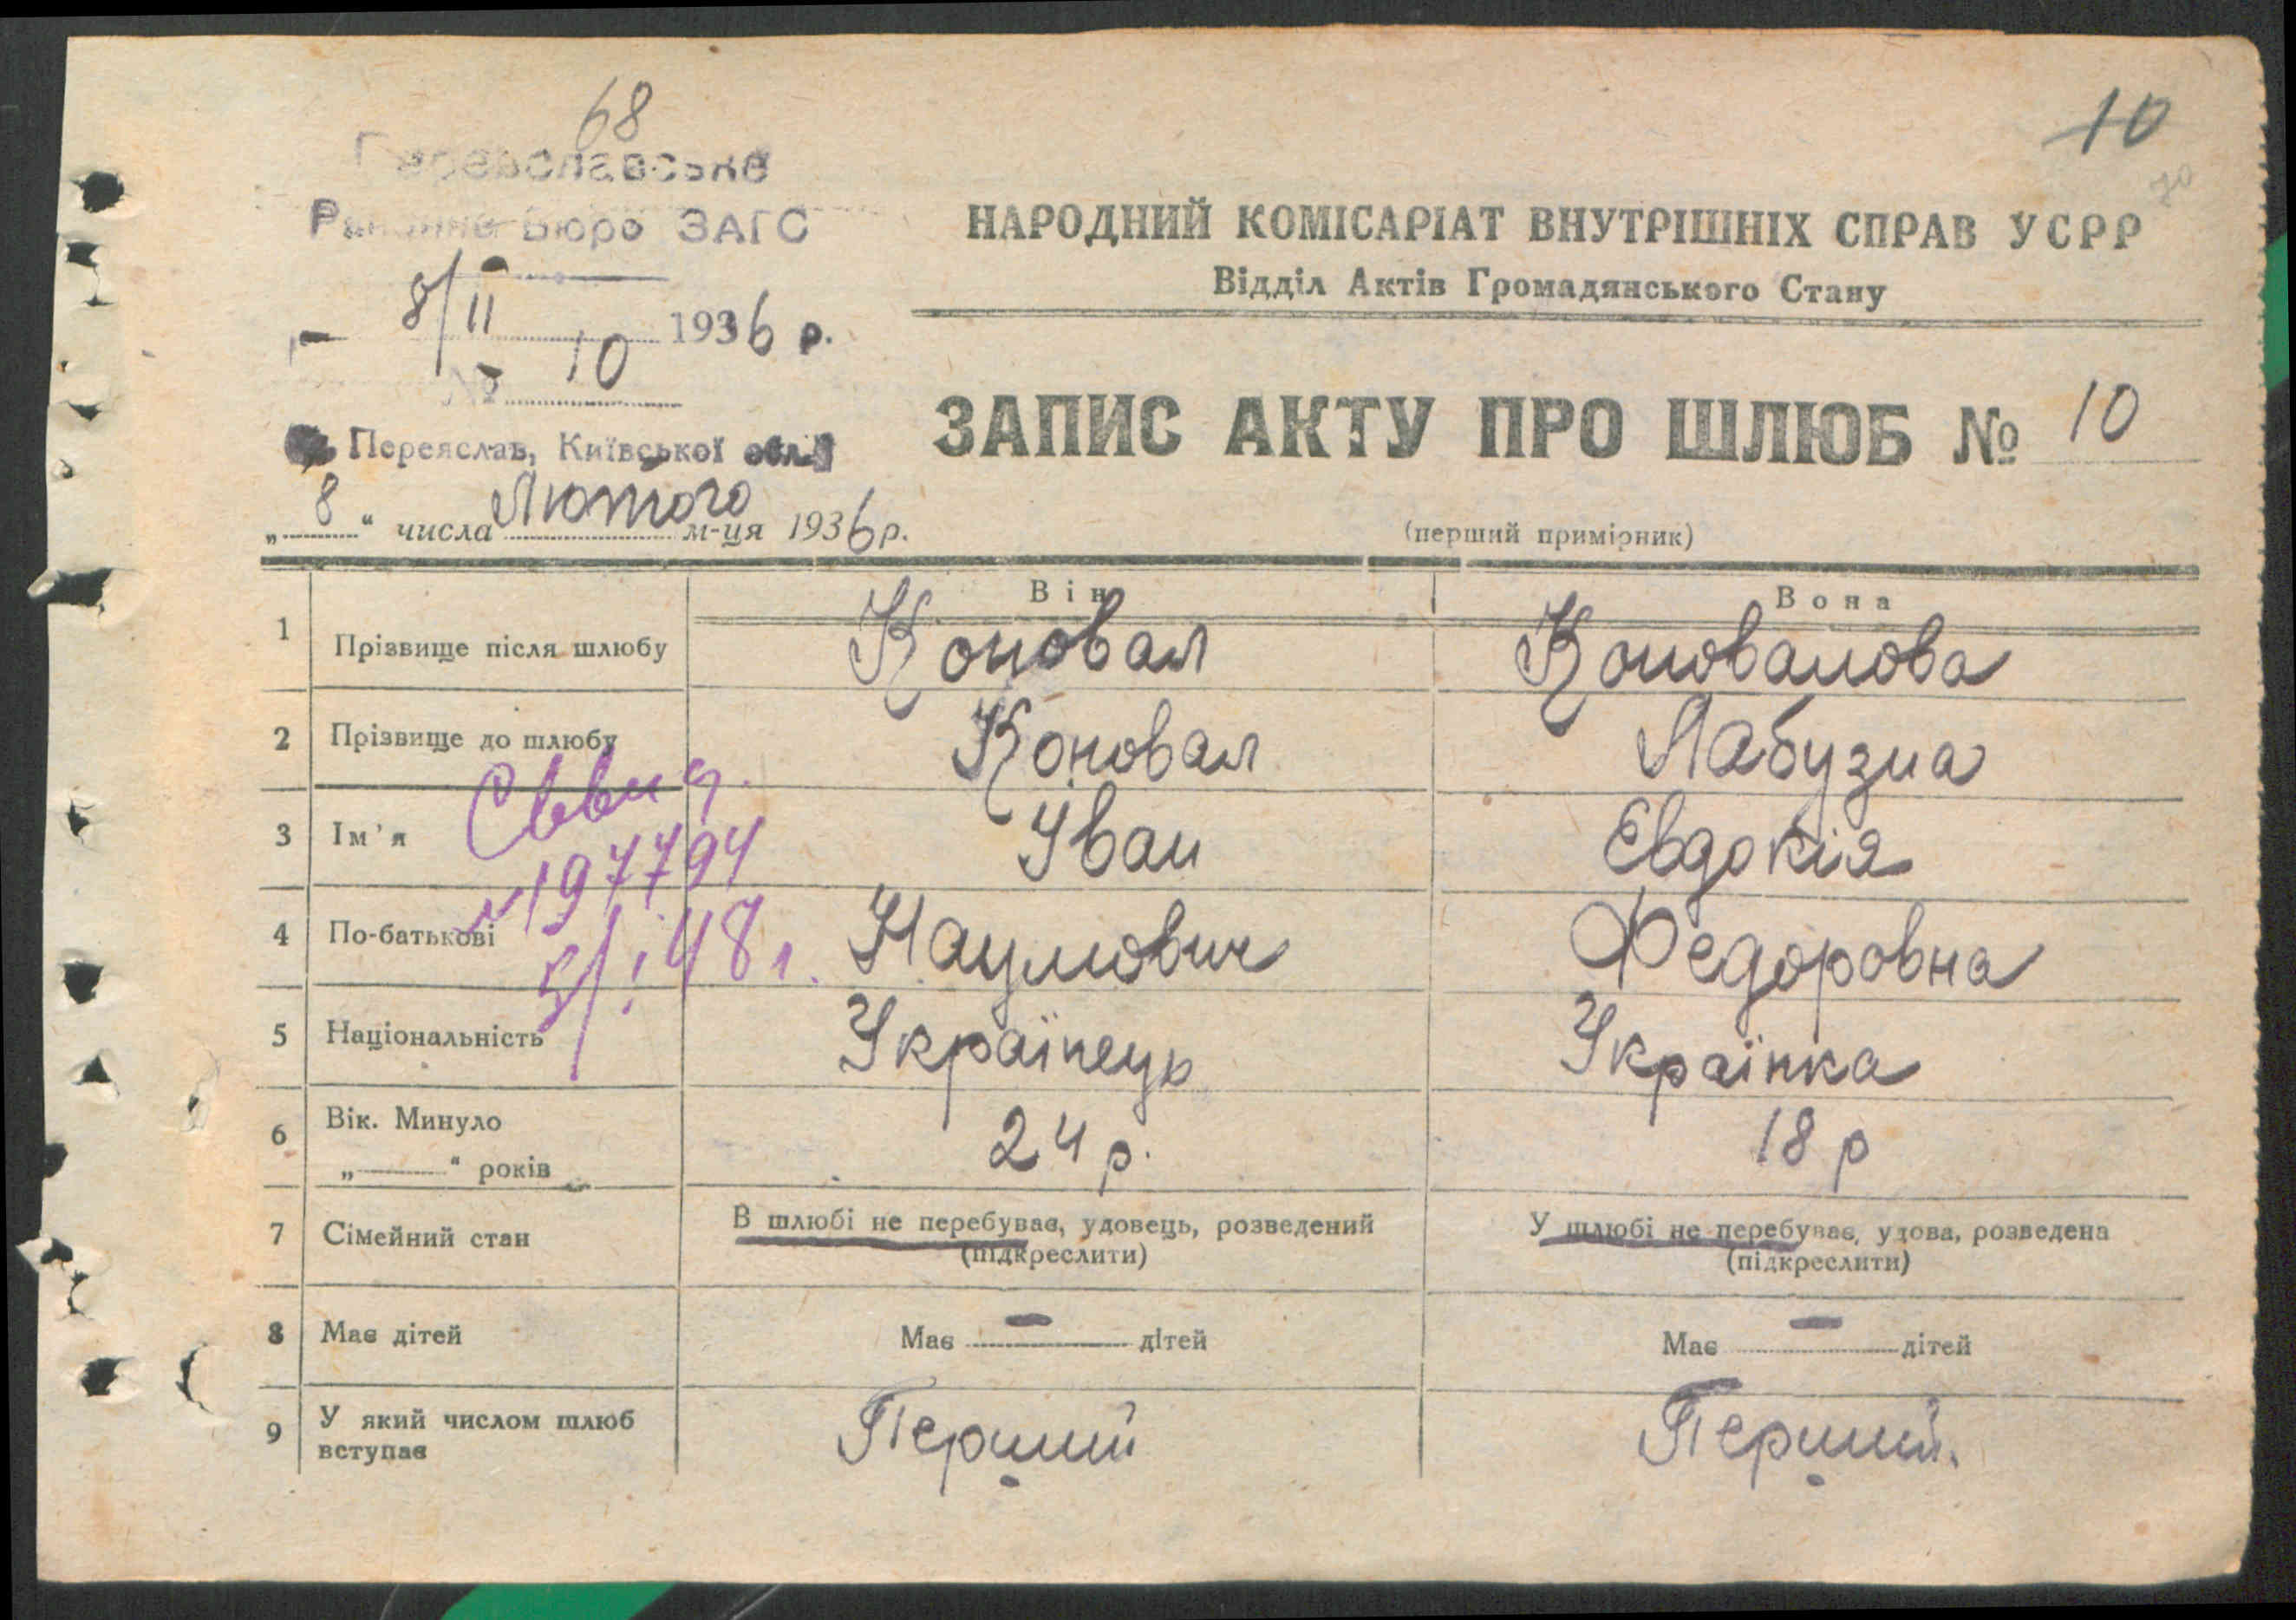 68
10
Переяславське
Районне Бюро ЗАГС
НАРОДНИЙ КОМІСАРІАТ ВНУТРІШНІХ СПРАВ УСРР
Відділ Актів Громадянського Стану
8/II 1936 р.
№ 10
ЗАПИС АКТУ ПРО ШЛЮБ № 10
Переяслав, Київської обл.
„8“ числа Лютого м-ця 1936 р.
(перший примірник)
Він Вона
1 Прізвище після шлюбу Коновал Коновалова
2 Прізвище до шлюбу Коновал Лабузна
3 Ім'я Іван Евдокія
4 По-батькові Наумович Федоровна
5 Національність Українець Українка
6 Вік. Минуло „ “ років 24 р. 18 р
7 Сімейний стан В шлюбі не перебуває, удовець, розведений (підкреслити) У шлюбі не перебуває, удова, розведена (підкреслити)
8 Має дітей Має — дітей Має — дітей
9 У який числом шлюб вступає Перший Перший.
197794
48 г.